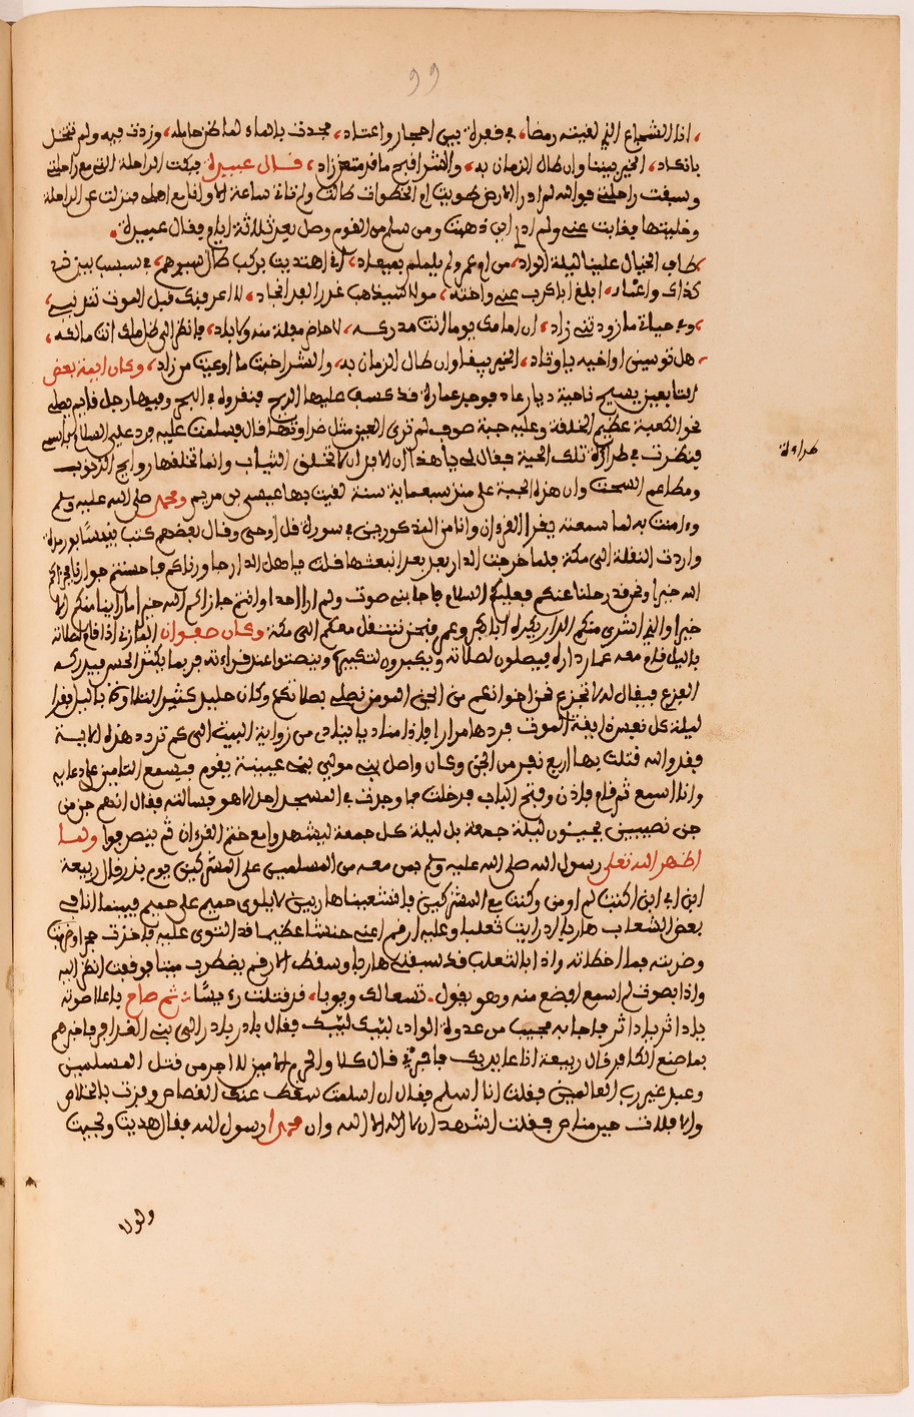 99
انا الشجاع الذي لفيته رمضا في فعرة بين احجار واعتاد فجدت بالماء لما ظن حامله وزدت فيه ولم تبخل
بانكاد الخير يبقا وان طال الزمان به والشر افبح ما فر متعز زاد فال عبيد فركبت الراحلة التي مع راحلتي
وسفت راحلتي فوالله لم ادر الارض طويت ام الخطوات طالت ولم تات ساعة الا وانا مع اهلي فنزلت عن الراحلة
وخليتها فغابت عني ولم ادر اين ذهبت ومن سلم من القوم وصل بعد ثلاثة ايام وفال عبيد
طاف الخيال علينا ليلة الواد من ام عمرو ولم يلمم بميعاد انى اهتديت بركب طال سيرهم في سبسب بين
ابلغ ابا كرب عني واخته فولا سيذهب غورا بعد انجاد لا اعرفنك فبل الموت تندبني
وفي حياتي ما زودتني زاد ان امامك يوما انت مدركه لا حاضر مفلة منه ولا باد فانظر الى ظل ملك انت مالكه
هل ترسين اواخيه باوتاد الخير يبفا وان طال الزمان به والشر اخبث ما اوعيت من زاد وكان بعض
التابعين يسيح ناحية ديار عاد فوجد عمارة فد عسف عليها الريح في البحر وفيها رجل فايم يصلي
نحو الكعبة عظيم الخلفة وعليه جبة صوف لم ترى العين مثل طراوتها فال فسلمت عليه فرد علي السلام باسمي
فنظرت في طراوة تلك الجبة ففال لي يا هذا ان الابدان لا تخلق الثياب وانما تخلفها روايح الذنوب
ومطاعم السحت وان هذه الجبة علي منذ سبعماية سنة لفيت بها عيسى بن مريم ومحمد صلى الله عليه وسلم
وءامنت به لما سمعته يفرا الفرءان وانا من المذكورين في سورة فل اوحي وفال بعضهم كنت بنيسابور مدة
واردت النفلة الى مكة فلما خرجت الدار بعد بعد انبعثها فلت يا هل الدار جاورناكم فاحسنتم جوارنا فجزاكم
الله خيرا ونحن فد رحلنا عنكم فعليكم السلام فاجابني صوت ولم ار احدا وانتم جازاكم الله خيرا ما راينا منكم الا
خيرا والذي اشترى منكم الدار يكره ابا بكر وعمر فنحن ننتفل معكم الى مكة وكان صفوان اذا فام لصلاته
بالليل فام معه عمار داره فيصلون لصلاته ويكبرون لتكبيره وينصتوا عند فراءته فربما يكثر الحس فيدركه
الفزع فيفال له لا تجزع نحن اخوانكم من الجن المومنين نصلي بصلاتكم وكان خليل كثير التلاوة بالليل يفرا
ليلة كل نفس ذايفة الموت فرددها مرارا فاذا مناد يا ينادي من زواية البيت الى كم تردد هذه الاية
ففد والله فتلت بها اربع نفر من الجن وكان واصل بن مولى ابن عيينة يفوم فيسمع التامين على دعايه
وانا اسمع ثم فام فاذن وفتح الباب فدخلت فما وجدت في المسجد احدا الا هو فسالته ففال انهم جن من
جن نصيبين يجيئون ليلة جمعة بل ليلة كل جمعة ليشهدوا مع ختم الفرءان ثم ينصرفوا ولما
اظهر الله تعلى رسول الله صلى الله عليه وسلم بمن معه من المسلمين على المشركين يوم بدر فال ربيعة
ابن ابي لم اومن وكنت مع المشركين فانشعبنا هاربين لا يلوى حميم على حميم فبينما انا في
بعض الشعاب هاربا اذ رايت ثعلبا وعليه ارفم اعني حنشا عظيما فد التوى عليه فاخذت حجرا
وضربته فما اخطاته واذا بالثعلب فد سبفني هاربا وسفط الارفم يضطرب ميتا فوفعت انظر اليه
واذا بصوت لم اسمع افضع منه وهو يفول تسعا لك وبوبا فد فتلت رءيسا ثم صاح باعلا صوته
يا داثر يا داثر فاجابه مجيب من عدوة الواد لبيك لبيك ففال بادر بادر الى بني الغدافر فاخبرهم
بما صنع الكافر فال ربيعة انا عايد بك فاجرني فال كلا والحرم الامين لا اجر من فتل المسلمين
وعبد غير رب العالمين ففلت انا اسلم ففال ان اسلمت سفط عنك الفصاص وفزت بالخلاص
والا فلات حين مناص ففلت اشهد ان لا اله الا الله وان محمدا رسول الله ففال هديت ونجيت
طراوة
ولولا